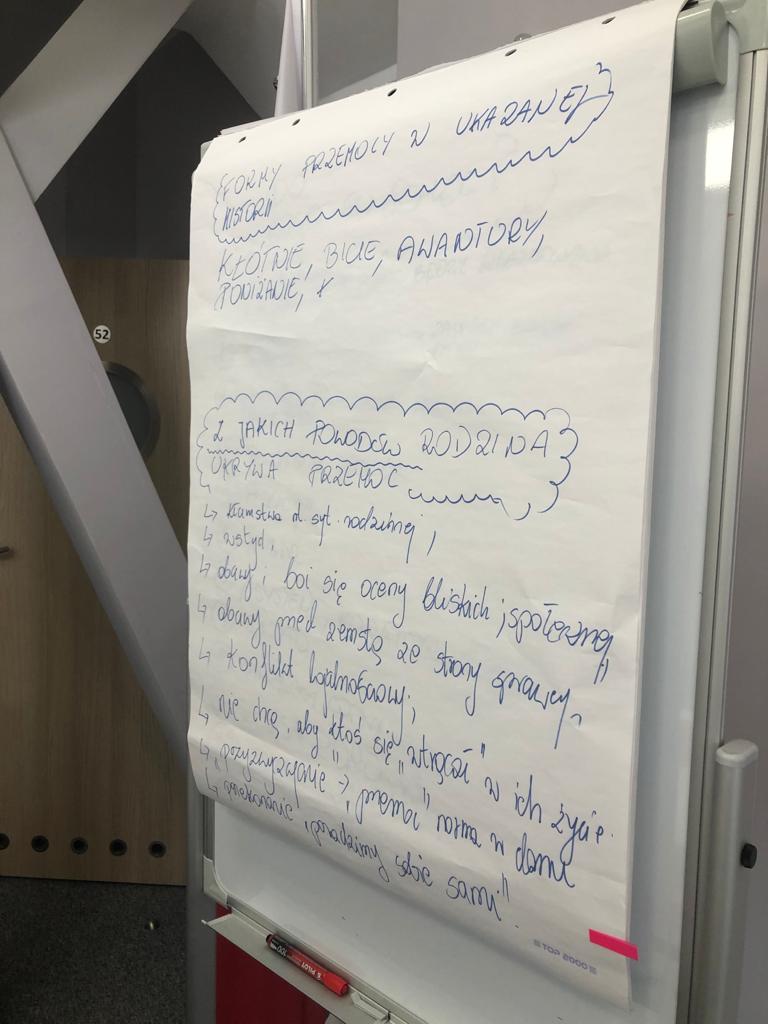 FORMY PRZEMOCY W UKAZANEJ
HISTORII
KŁÓTNIE, BICIE, AWANTURY,
PONIŻANIE,
Z JAKICH POWODÓW RODZINA
UKRYWA PRZEMOC
↳ kłamstwa n. syt. rodzinnej,
↳ wstyd,
↳ obawy i boi się oceny bliskich, społecznej"
↳ obawy przed zemstą ze strony sprawcy,
↳ Konflikt lojalnościowy;
↳ nie chcę, aby ktoś się "wtrącał" w ich życie.
↳ "przyzwyczajenie" → "przemoc" norma w domu
↳ przekonanie, "poradzimy sobie sami".
52
PILOT
100
TOP 2000